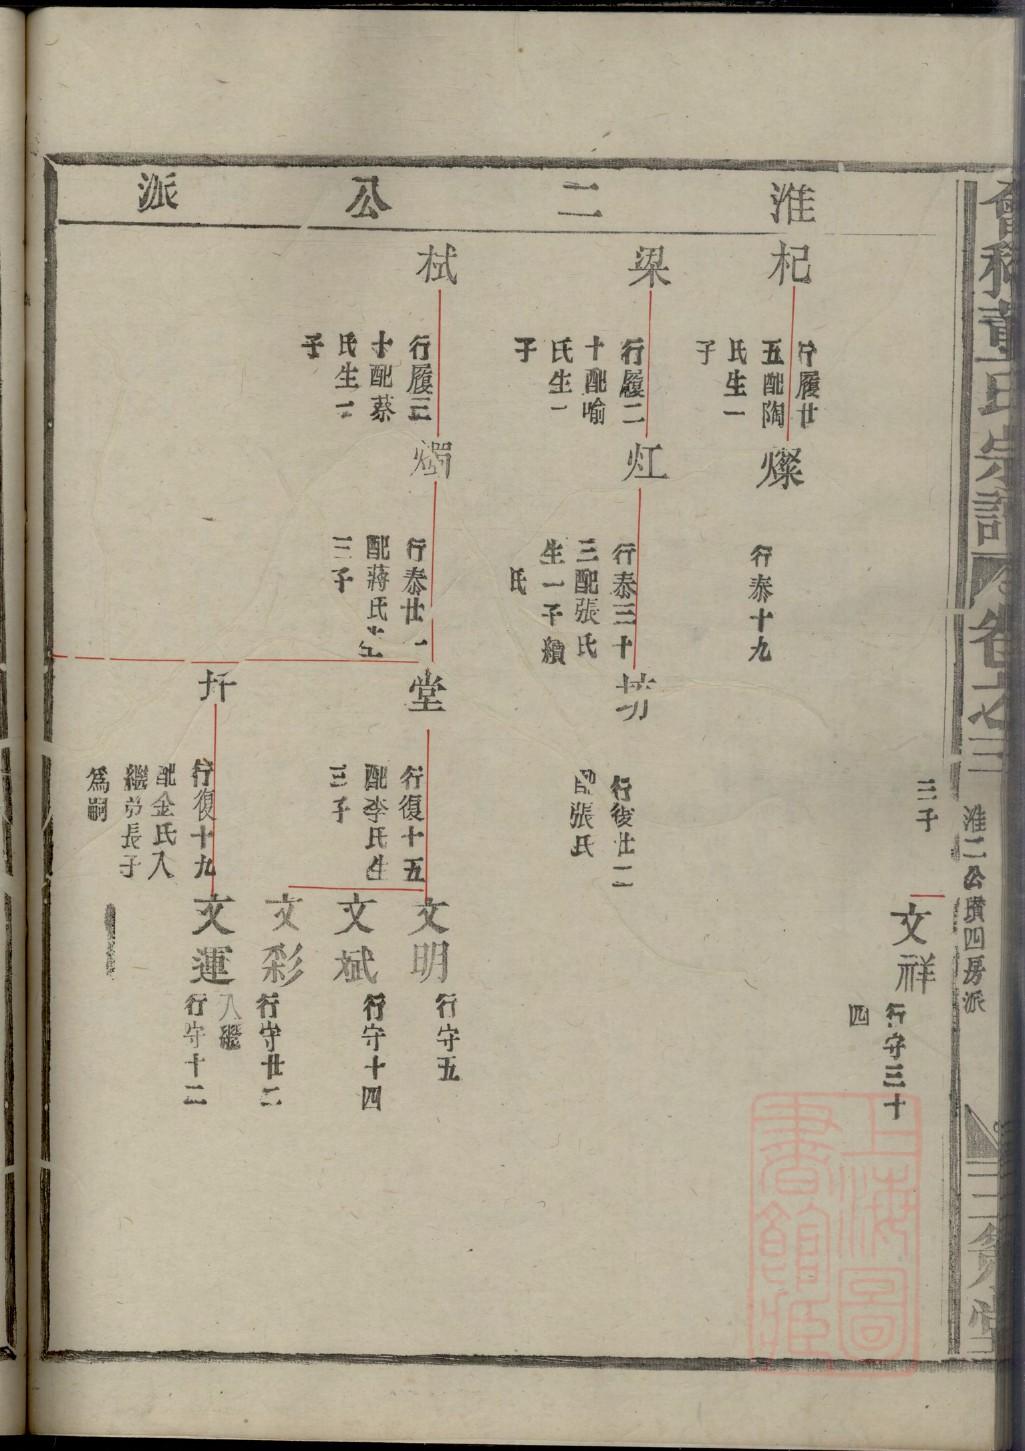 會稽董氏宗譜
卷之三
淮二公璜四房派
三
淮二公派
三子
文祥
行守三十
四
杞
行履廿
五配陶
氏生一
子
燦
行泰十九
梁
行履二
十配喻
氏生一
子
灴
行泰三十
三配張氏
生一子續
氏
坊
行復廿二
配張氏
栻
行履三
十配蔡
氏生一
子
燭
行泰廿一
配蔣氏生
三子
堂
行復十五
配李氏生
三子
文明
行守五
文斌
行守十四
文彩
行守廿二
圱
行復十九
配金氏入
繼弟長子
為嗣
文運
入繼
行守十二
上海圖書館藏